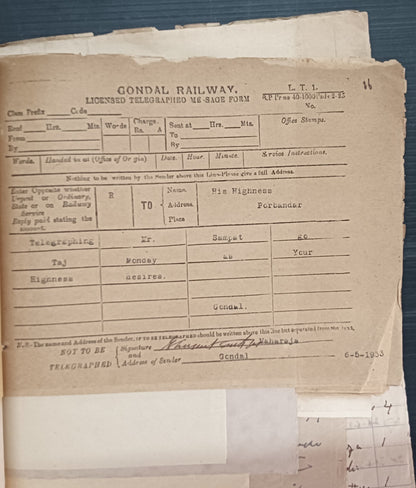 GONDAL RAILWAY.
L. T. 1.
LICENSED TELEGRAPHED MESSAGE FORM
No.
16
Class Prefix Code
Recd Hrs. Mts. Words Charge. Rs. A Sent at Hrs. Mts. Office Stamps.
From To
By By
Words. Handed in at (Office of Origin) Date. Hour. Minute. Service Instructions.
Nothing to be written by the Sender above this Line-Please give a full Address.
Enter Opposite whether R Name. His Highness
Urgent or Ordinary,
State or on Railway TO Address. Porbandar
Service
Reply paid stating the Place
amount.
Telegraphing Mr. Sampat go
Taj Monday as Your
Highness desires.
Gondal.
N.B.-The name and Address of the Sender, IF TO BE TELEGRAPHED should be written above this line but separated from the text.
NOT TO BE Signature Maharaja
and
TELEGRAPHED Address of Sender Gondal 6-5-1933
4
1
1